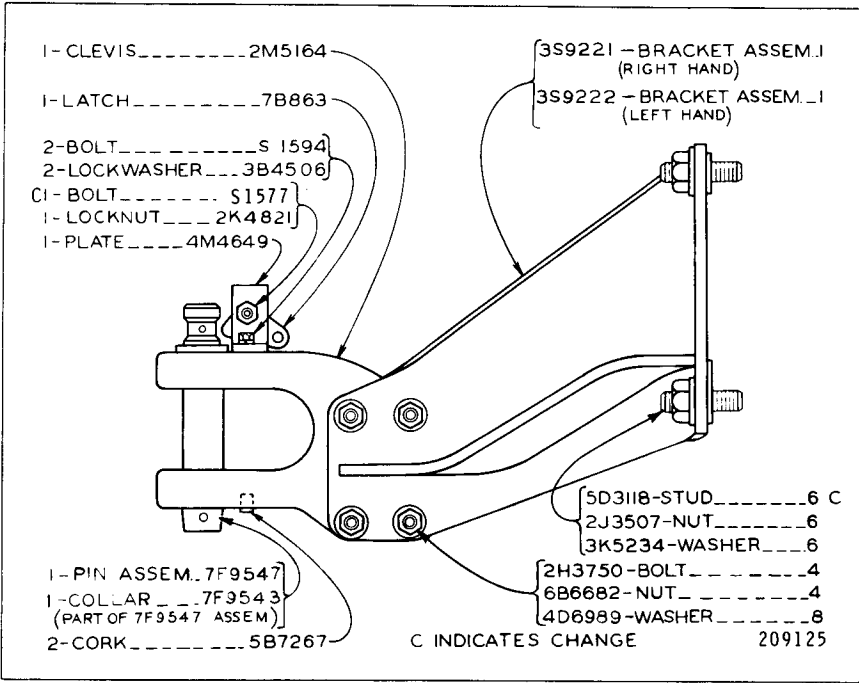 1-CLEVIS________2M5164
1-LATCH_________7B863
2-BOLT___ ______S 1594
2-LOCKWASHER___3B4506
C1-BOLT_______ S1577
1-LOCKNUT___2K4821
1-PLATE____4M4649
3S9221-BRACKET ASSEM._1
(RIGHT HAND)
3S9222-BRACKET ASSEM._1
(LEFT HAND)
5D3118-STUD_______6 C
2J3507-NUT_______6
3K5234-WASHER___6
2H3750-BOLT_______4
6B6682-NUT_______4
4D6989-WASHER_____8
1-PIN ASSEM._7F9547
1-COLLAR___7F9543
(PART OF 7F9547 ASSEM)
2-CORK_________5B7267
C INDICATES CHANGE
209125